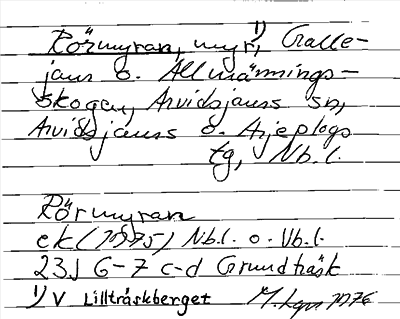 Rörmyran, myr, 1) Galle-
jaur o. Allmännings-
skogen, Arvidsjaurs sn,
Arvidsjaurs o. Arjeplogs
tg, Nb.l.
Rörmyran
ek (1975) Nb.l. o. Vb.l.
23J 6-7 c-d Grundträsk
1) V Lillträskberget 1976